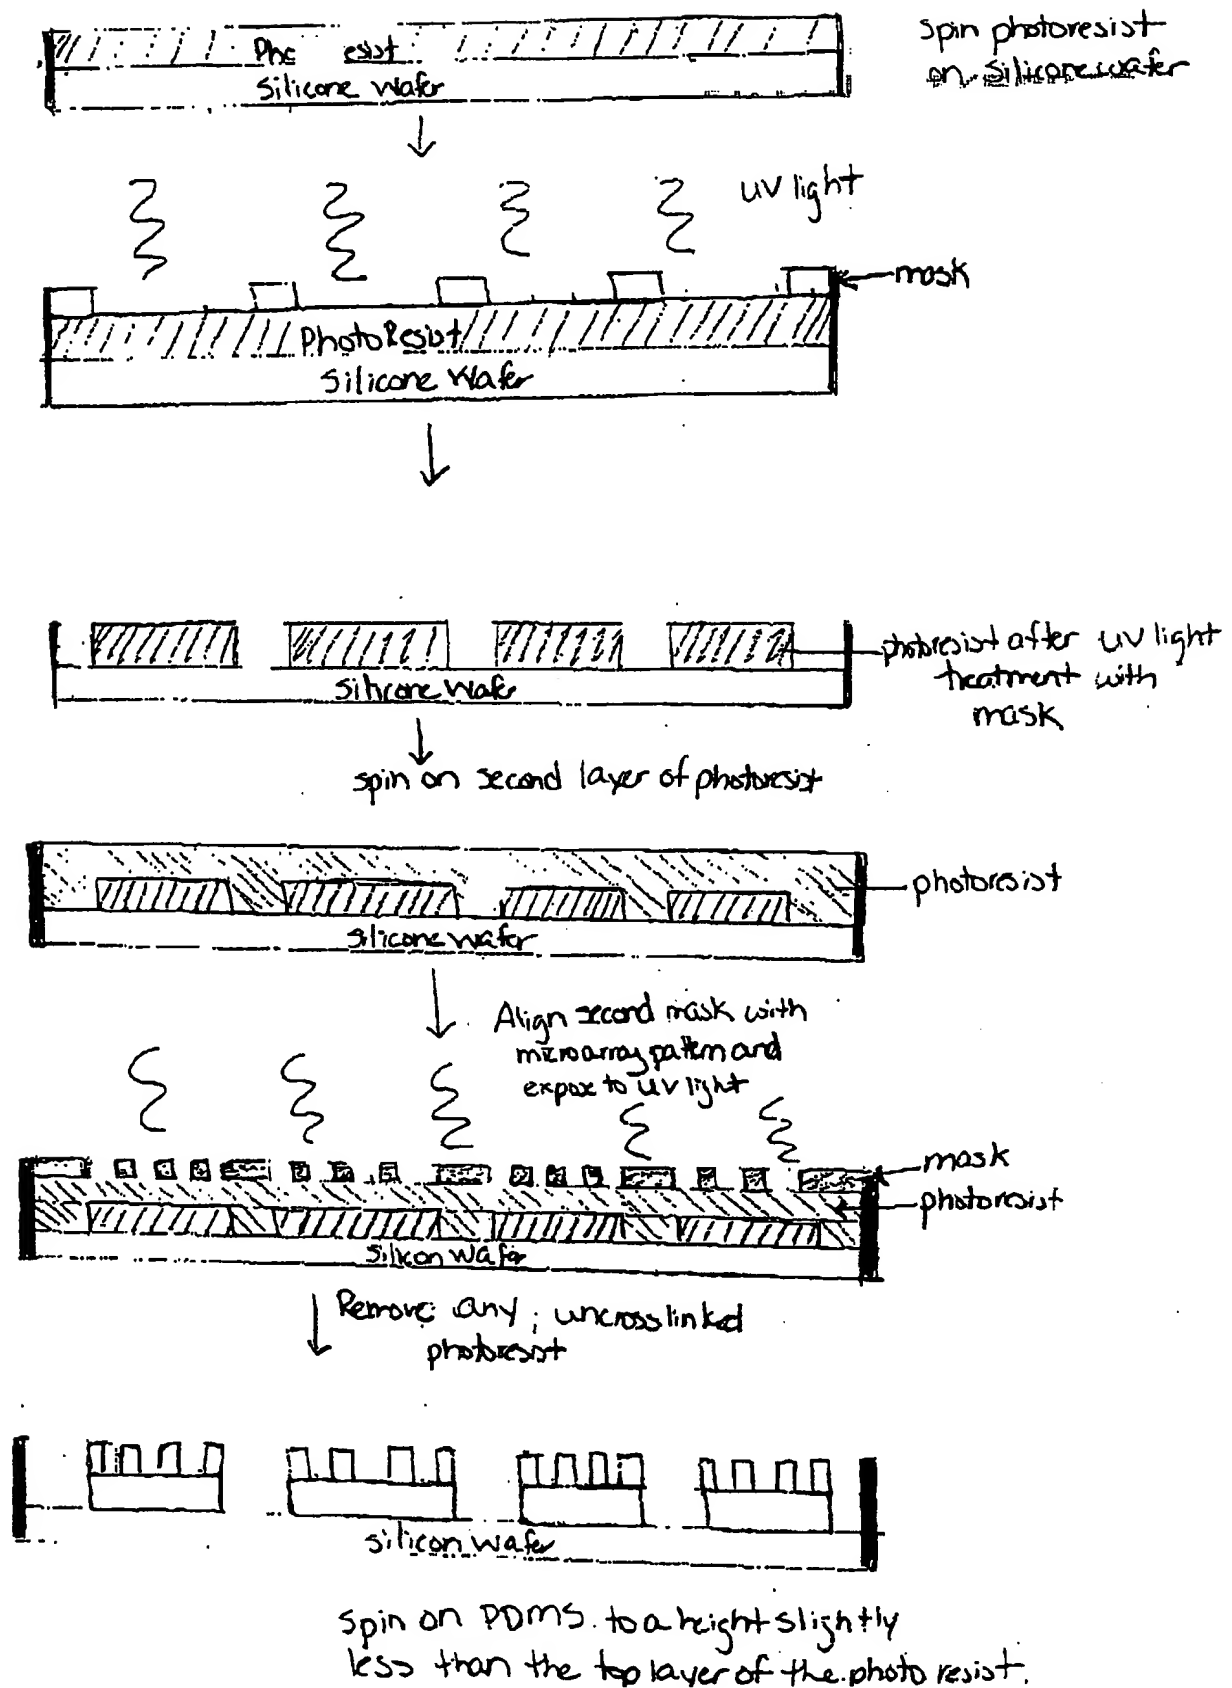 spin photoresist
on silicone wafer
Pho esist
Silicone Wafer
UV light
mask
PhotoResist
Silicone Wafer
photoresist after UV light
treatment with
mask
Silicone Wafer
spin on second layer of photoresist
photoresist
silicone wafer
Align second mask with
microarray pattern and
expose to UV light
mask
photoresist
silicon wafer
Remove any uncrosslinked
photoresist
silicon wafer
spin on PDMS to a height slightly
less than the top layer of the photo resist.